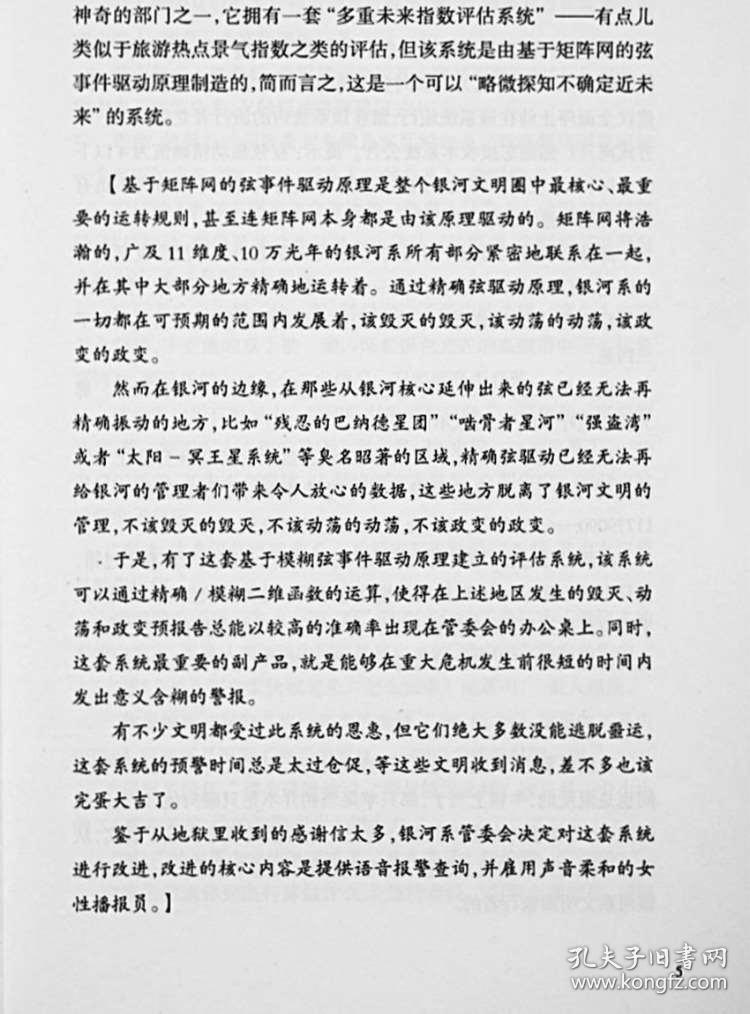 神奇的部门之一，它拥有一套“多重未来指数评估系统”——有点儿
类似于旅游热点景气指数之类的评估，但该系统是由基于矩阵网的弦
事件驱动原理制造的，简而言之，这是一个可以“略微探知不确定近未
来”的系统。
【基于矩阵网的弦事件驱动原理是整个银河文明圈中最核心、最重
要的运转规则，甚至连矩阵网本身都是由该原理驱动的。矩阵网将浩
瀚的，广及11维度、10万光年的银河系所有部分紧密地联系在一起，
并在其中大部分地方精确地运转着。通过精确弦驱动原理，银河系的
一切都在可预期的范围内发展着，该毁灭的毁灭，该动荡的动荡，该政
变的政变。
然而在银河的边缘，在那些从银河核心延伸出来的弦已经无法再
精确振动的地方，比如“残忍的巴纳德星团”“啮骨者星河”“强盗湾”
或者“太阳－冥王星系统”等臭名昭著的区域，精确弦驱动已经无法再
给银河的管理者们带来令人放心的数据，这些地方脱离了银河文明的
管理，不该毁灭的毁灭，不该动荡的动荡，不该政变的政变。
于是，有了这套基于模糊弦事件驱动原理建立的评估系统，该系统
可以通过精确/模糊二维函数的运算，使得在上述地区发生的毁灭、动
荡和政变预报告总能以较高的准确率出现在管委会的办公桌上。同时，
这套系统最重要的副产品，就是能够在重大危机发生前很短的时间内
发出意义含糊的警报。
有不少文明都受过此系统的恩惠，但它们绝大多数没能逃脱噩运，
这套系统的预警时间总是太过仓促，等这些文明收到消息，差不多也该
完蛋大吉了。
鉴于从地狱里收到的感谢信太多，银河系管委会决定对这套系统
进行改进，改进的核心内容是提供语音报警查询，并雇用声音柔和的女
性播报员。】
5
孔夫子旧书网
www.kongfz.com